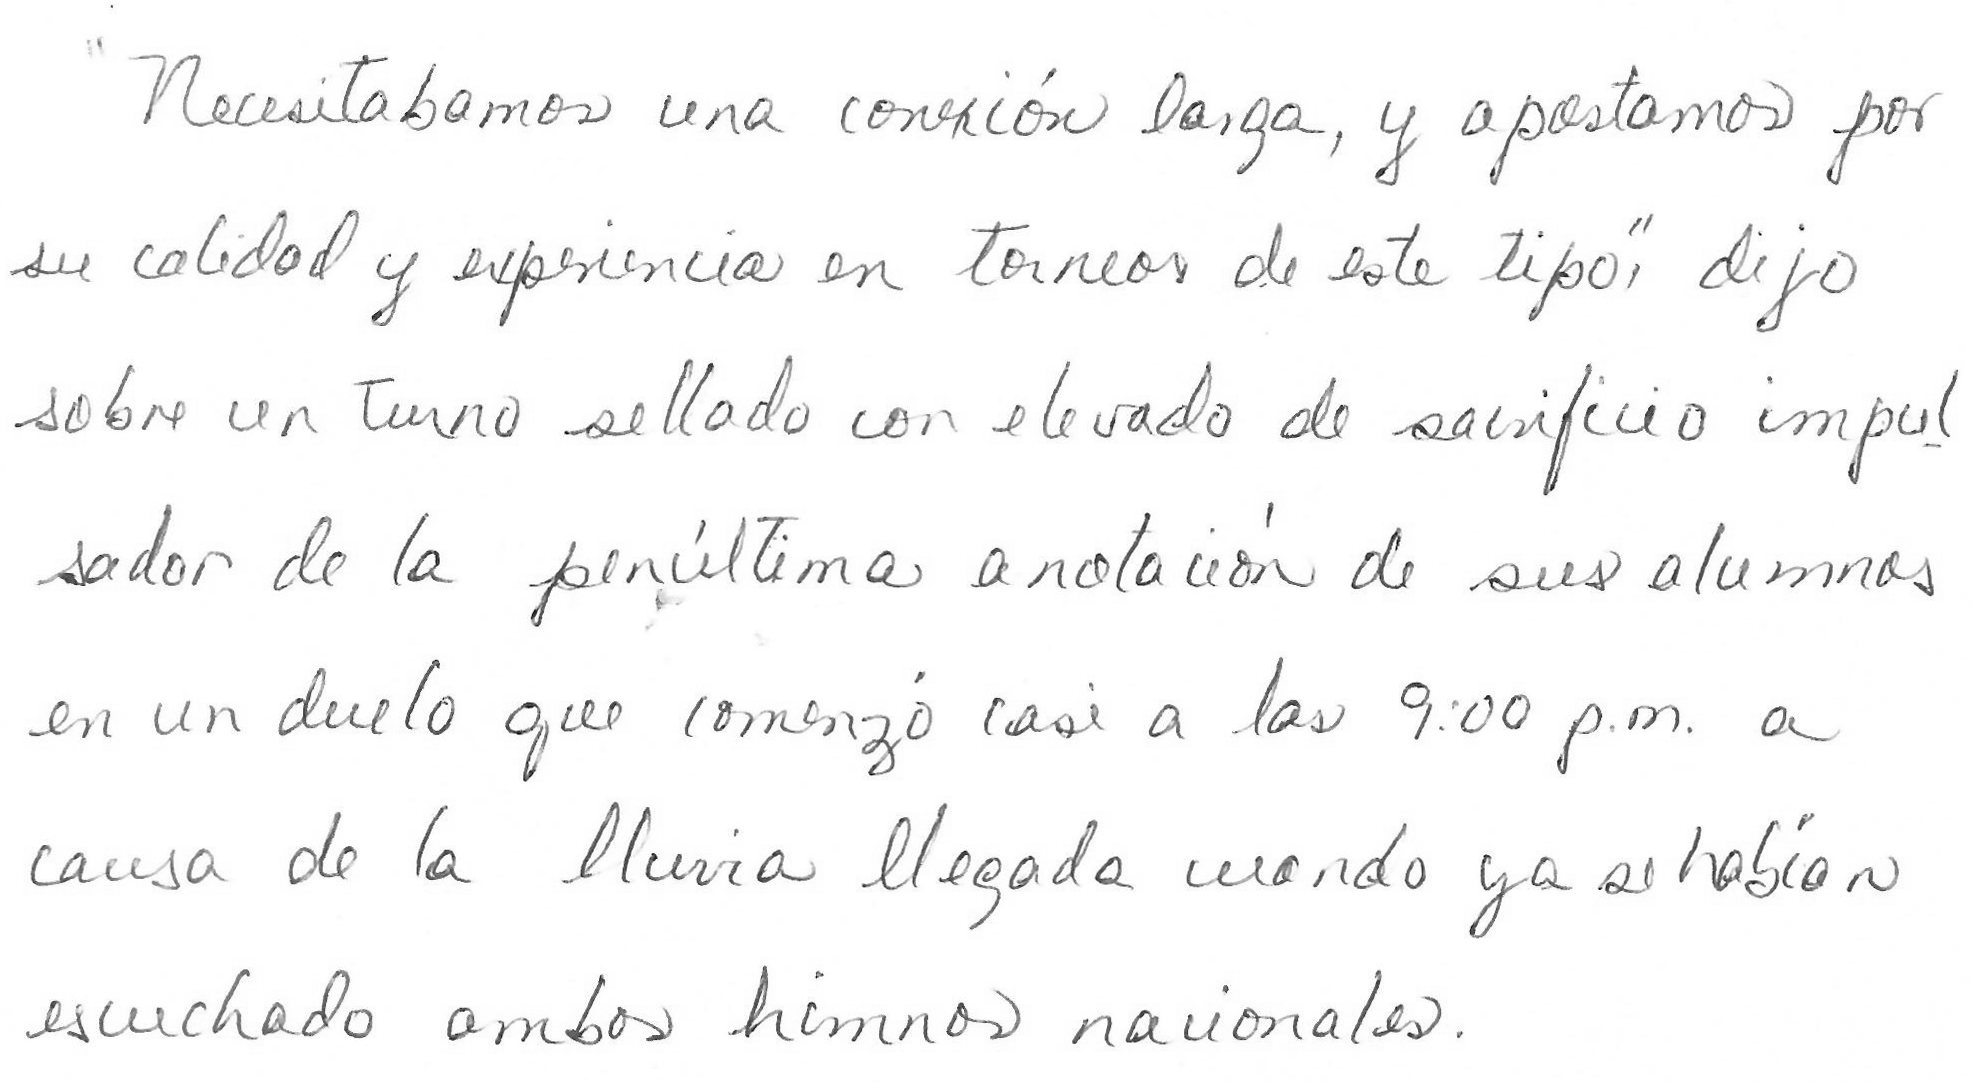 "Necesitabamos una conexión larga, y apostamos por
su calidad y experiencia en torneos de este tipo", dijo
sobre un turno sellado con elevado de sacrificio impul-
sador de la penúltima anotación de sus alumnos
en un duelo que comenzó casi a las 9:00 p.m. a
causa de la lluvia llegada cuando ya se habían
escuchado ambos himnos nacionales.